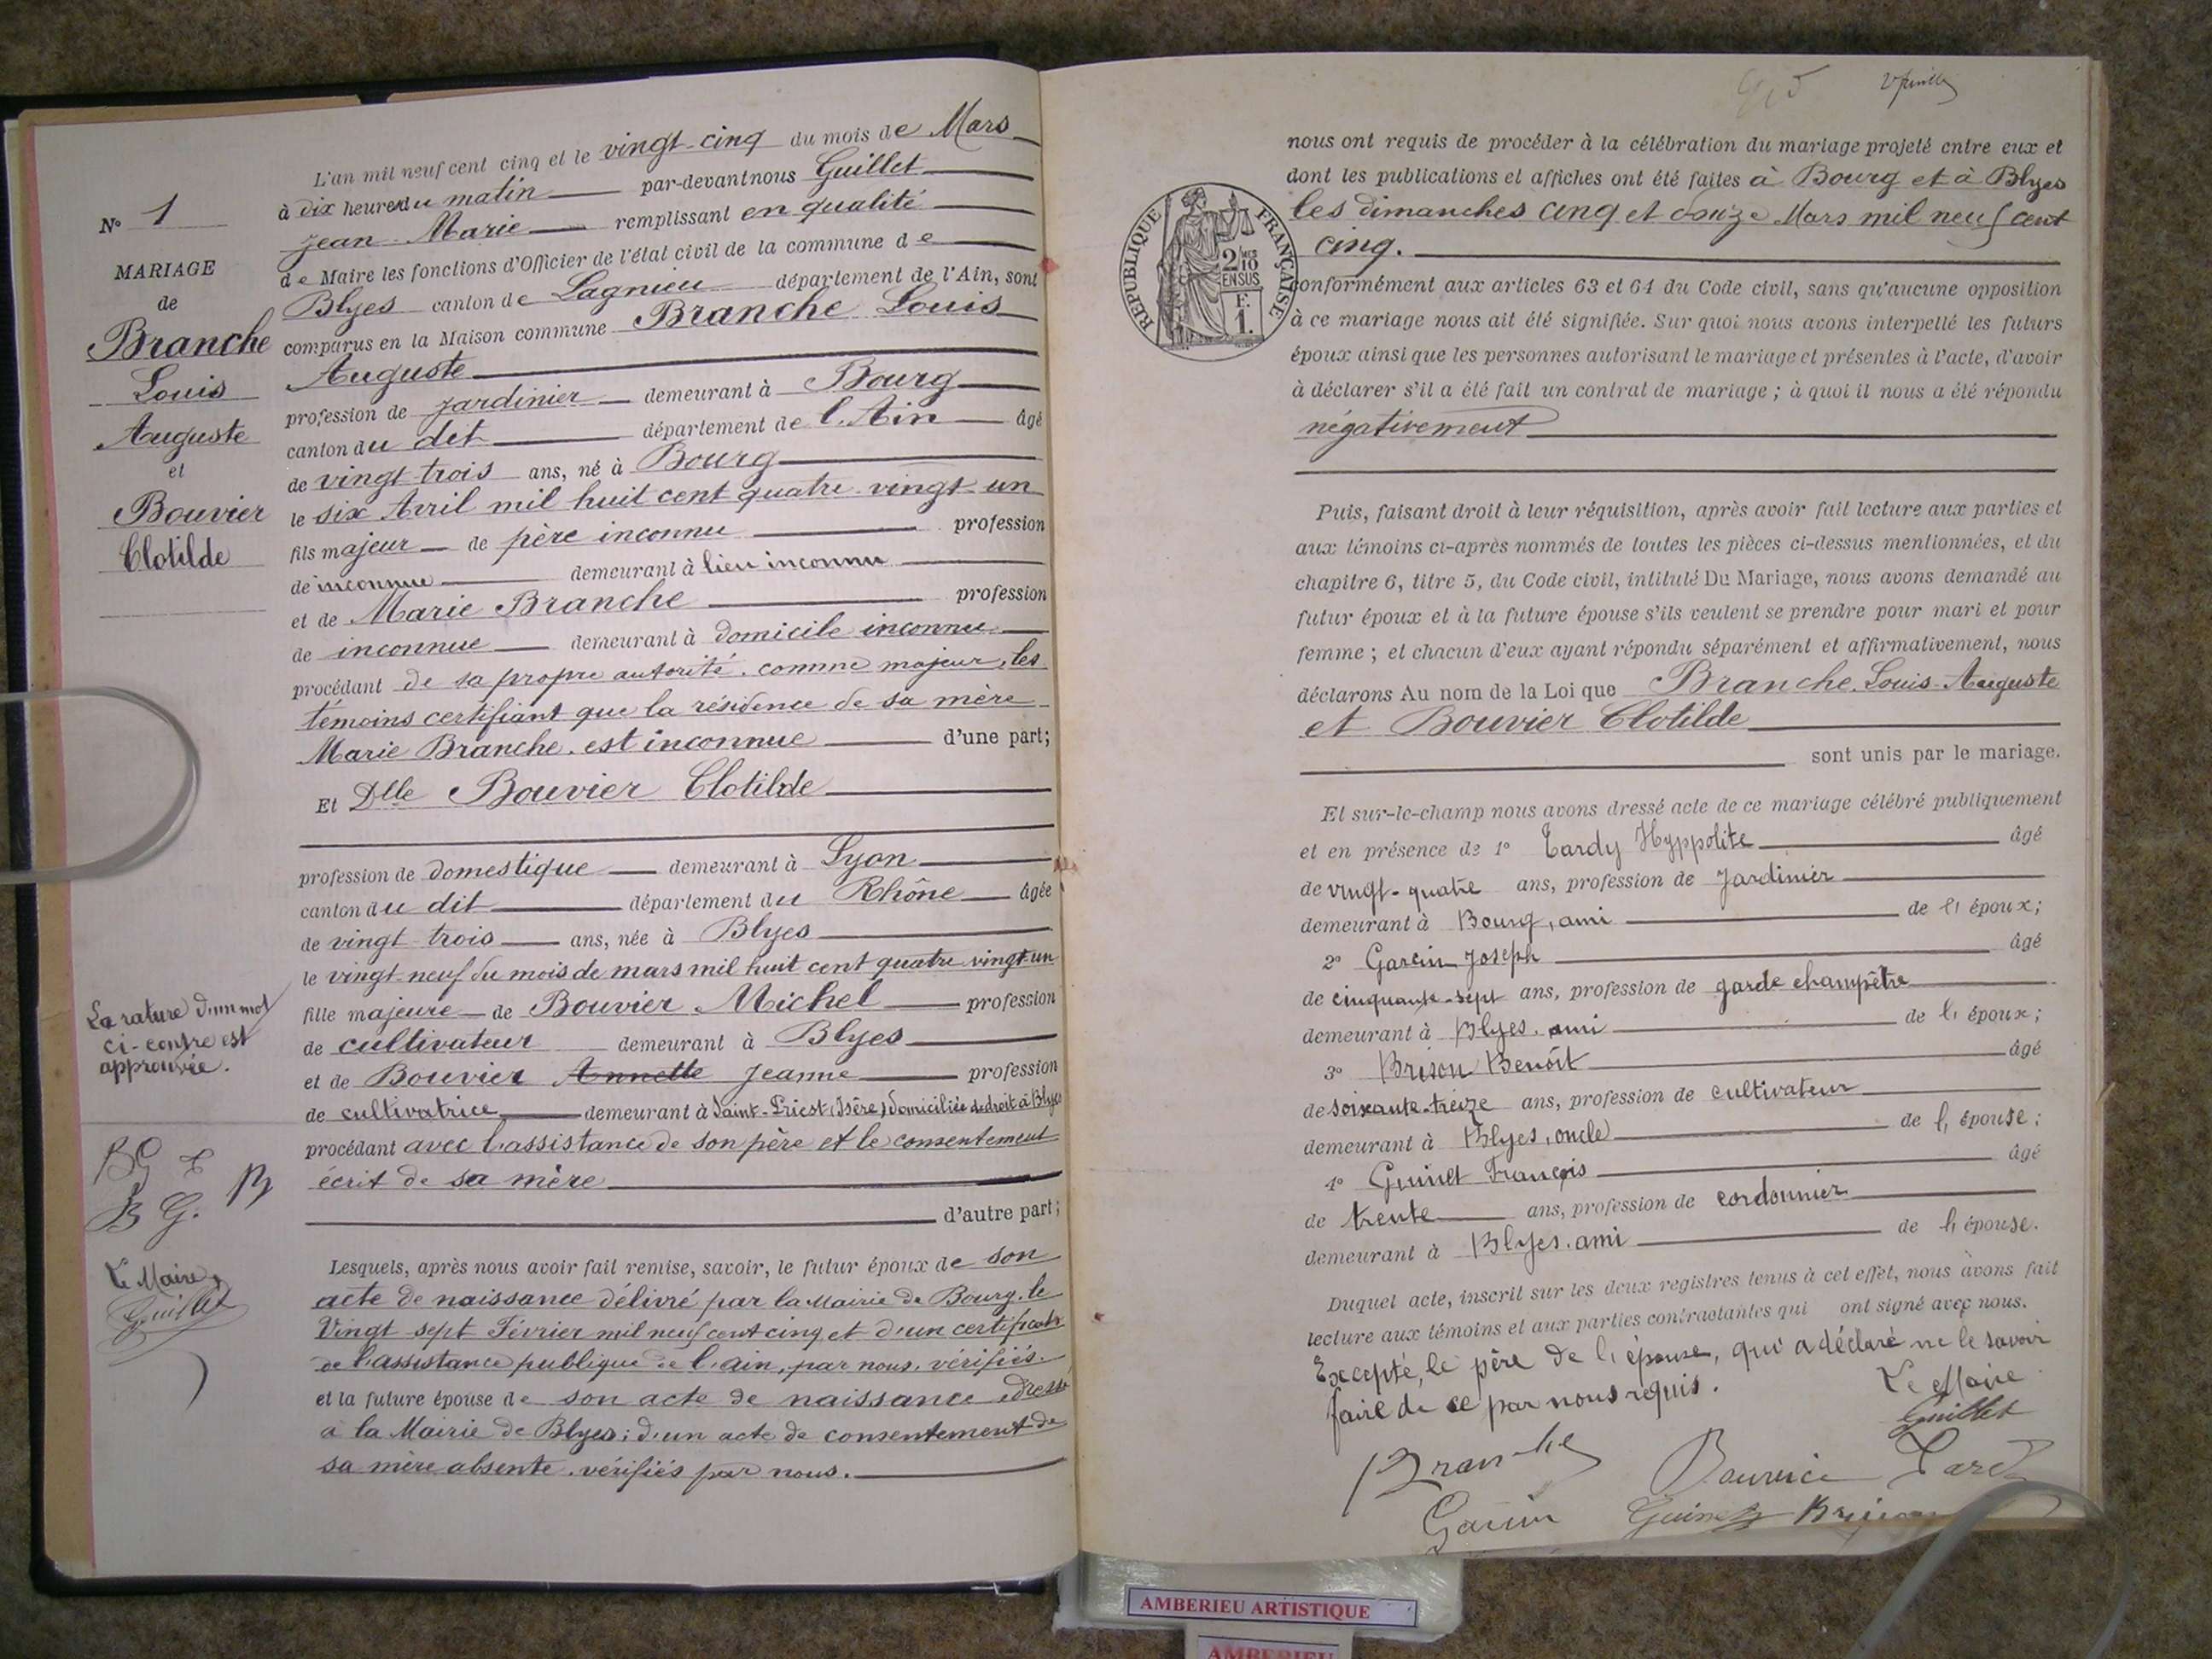 N° 1
MARIAGE
de
Branche
Louis
Auguste
et
Bouvier
Clotilde
La rature d'un mot
ci-contre est
approuvée.
BG
B G.
Le Maire
Guillet
L'an mil neuf cent cinq et le vingt-cinq du mois de Mars
à dix heures du matin par-devant nous Guillet
Jean-Marie remplissant en qualité
de Maire les fonctions d'Officier de l'état civil de la commune de
Blyes canton de Lagnieu département de l'Ain, sont
comparus en la Maison commune Branche Louis
Auguste
profession de jardinier demeurant à Bourg
canton du dit département de l'Ain âgé
de vingt trois ans, né à Bourg
le six Avril mil huit cent quatre-vingt-un
fils majeur de père inconnu profession
de inconnue demeurant à lieu inconnu
et de Marie Branche profession
de inconnue demeurant à domicile inconnu
procédant de sa propre autorité, comme majeur, les
témoins certifiant que la résidence de sa mère
Marie Branche, est inconnue d'une part;
Et Dlle Bouvier Clotilde
profession de domestique demeurant à Lyon
canton du dit département du Rhône âgée
de vingt-trois ans, née à Blyes
le vingt-neuf du mois de mars mil huit cent quatre vingt un
fille majeure de Bouvier Michel profession
de cultivateur demeurant à Blyes
et de Bouvier Annette Jeanne profession
de cultivatrice demeurant à Saint-Priest (Isère) domiciliée de droit à Blyes
procédant avec l'assistance de son père et le consentement
écrit de sa mère
d'autre part;
Lesquels, après nous avoir fait remise, savoir, le futur époux de son
acte de naissance délivré par la Mairie de Bourg, le
Vingt-sept Février mil neuf cent cinq et d'un certificat
de l'assistance publique de l'ain, par nous, vérifiés.
et la future épouse de son acte de naissance dressé
a la Mairie de Blyes; d'un acte de consentement de
sa mère absente, vérifiés par nous.
RÉPUBLIQUE FRANÇAISE
2/10 MES
EN SUS
F.
1.
nous ont requis de procéder à la célébration du mariage projeté entre eux et
dont les publications et affiches ont été faites à Bourg et à Blyes
les dimanches cinq et douze Mars mil neuf cent
cinq.
conformément aux articles 63 et 64 du Code civil, sans qu'aucune opposition
à ce mariage nous ait été signifiée. Sur quoi nous avons interpellé les futurs
époux ainsi que les personnes autorisant le mariage et présentes à l'acte, d'avoir
à déclarer s'il a été fait un contrat de mariage; à quoi il nous a été répondu
négativement
Puis, faisant droit à leur réquisition, après avoir fait lecture aux parties et
aux témoins ci-après nommés de toutes les pièces ci-dessus mentionnées, et du
chapitre 6, titre 5, du Code civil, intitulé Du Mariage, nous avons demandé au
futur époux et à la future épouse s'ils veulent se prendre pour mari et pour
femme; et chacun d'eux ayant répondu séparément et affirmativement, nous
déclarons Au nom de la Loi que Branche, Louis-Auguste
et Bouvier Clotilde
sont unis par le mariage.
Et sur-le-champ nous avons dressé acte de ce mariage célébré publiquement
et en présence de 1° Tardy Hyppolite âgé
de vingt-quatre ans, profession de Jardinier
demeurant à Bourg, ami de l'époux;
2° Garcin Joseph âgé
de cinquante-sept ans, profession de garde champêtre
demeurant à Blyes, ami de l'époux;
3° Brison Benoît âgé
de soixante-treize ans, profession de cultivateur
demeurant à Blyes, oncle de l'épouse;
4° Guinet François âgé
de trente ans, profession de cordonnier
demeurant à Blyes, ami de l'épouse.
Duquel acte, inscrit sur les deux registres tenus à cet effet, nous avons fait
lecture aux témoins et aux parties contractantes qui ont signé avec nous.
Excepté, le père de l'épouse, qui a déclaré ne le savoir
faire de ce par nous requis.
Le Maire
Guillet
Branche
Bouvier Tardy
Garcin Guinet Brison
AMBERIEU ARTISTIQUE
AMBERIEU